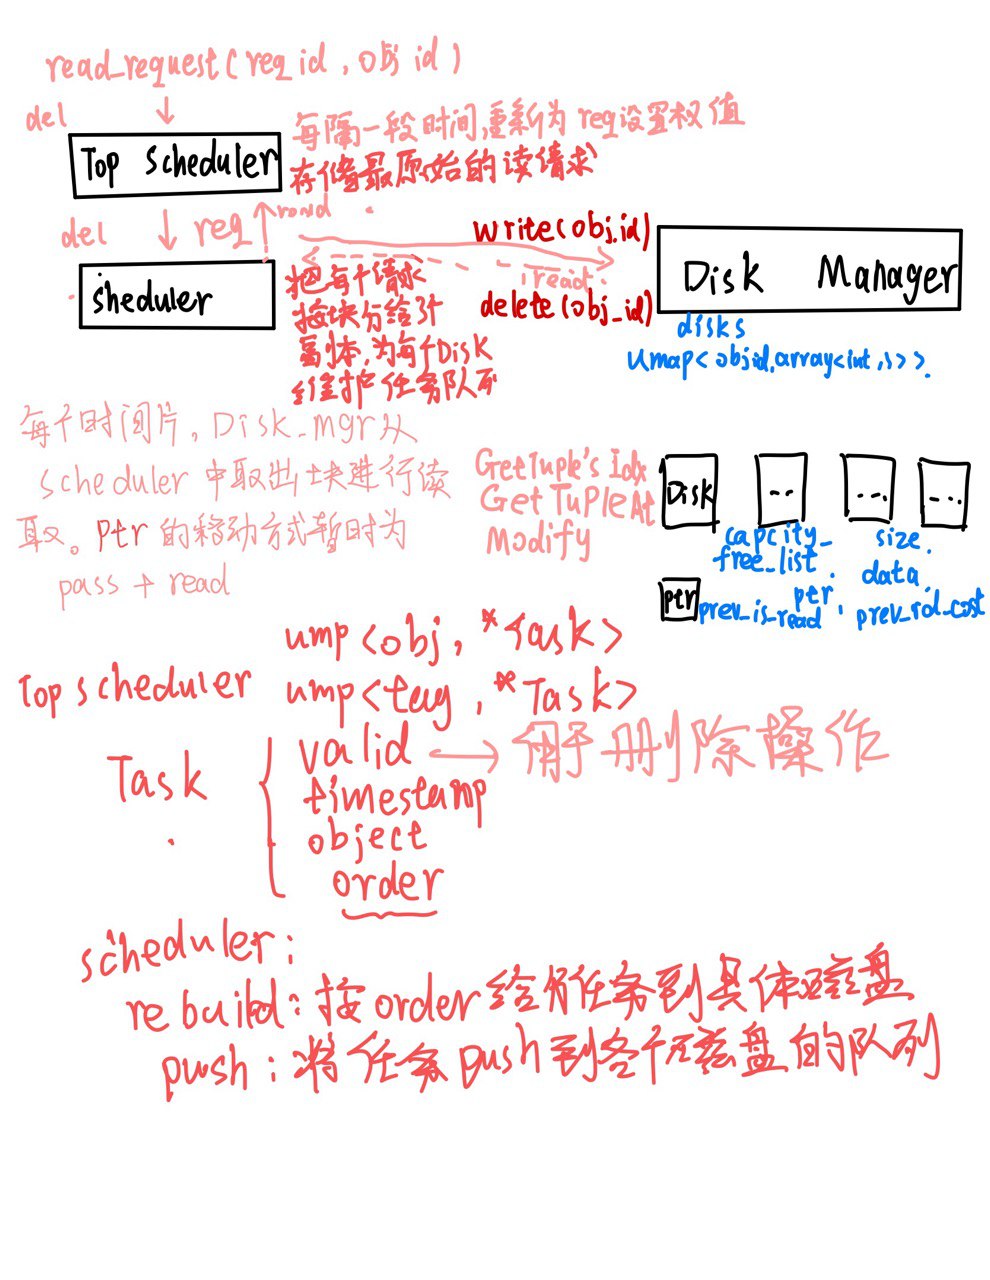 read_request(req id, obj id)
del
每隔一段时间,重新为req设置权值
Top Scheduler
存储最原始的读请求
del
req
write(obj.id)
read
sheduler
Disk Manager
把每个请求
按块分给3个
副本,为每个Disk
维护任务队列
delete(obj_id)
disks
umap<objid,array<int,3>>.
每个时间片,Disk_mgr从
scheduler中取出块进行读
取。ptr的移动方式暂时为
pass + read
GetTuple's Idx
Get TuPleAt
Modify
Disk
...
...
...
capcity_
free_list.
size.
data.
ptr
prev_is_read
ptr.
prev_rd_cost
Top scheduler
ump<obj, *Task>
ump<tag, *Task>
Task
valid → 用于删除操作
timestamp
object
order
scheduler:
rebuild:按order给分任务到具体磁盘
push:将任务push到各个磁盘的队列